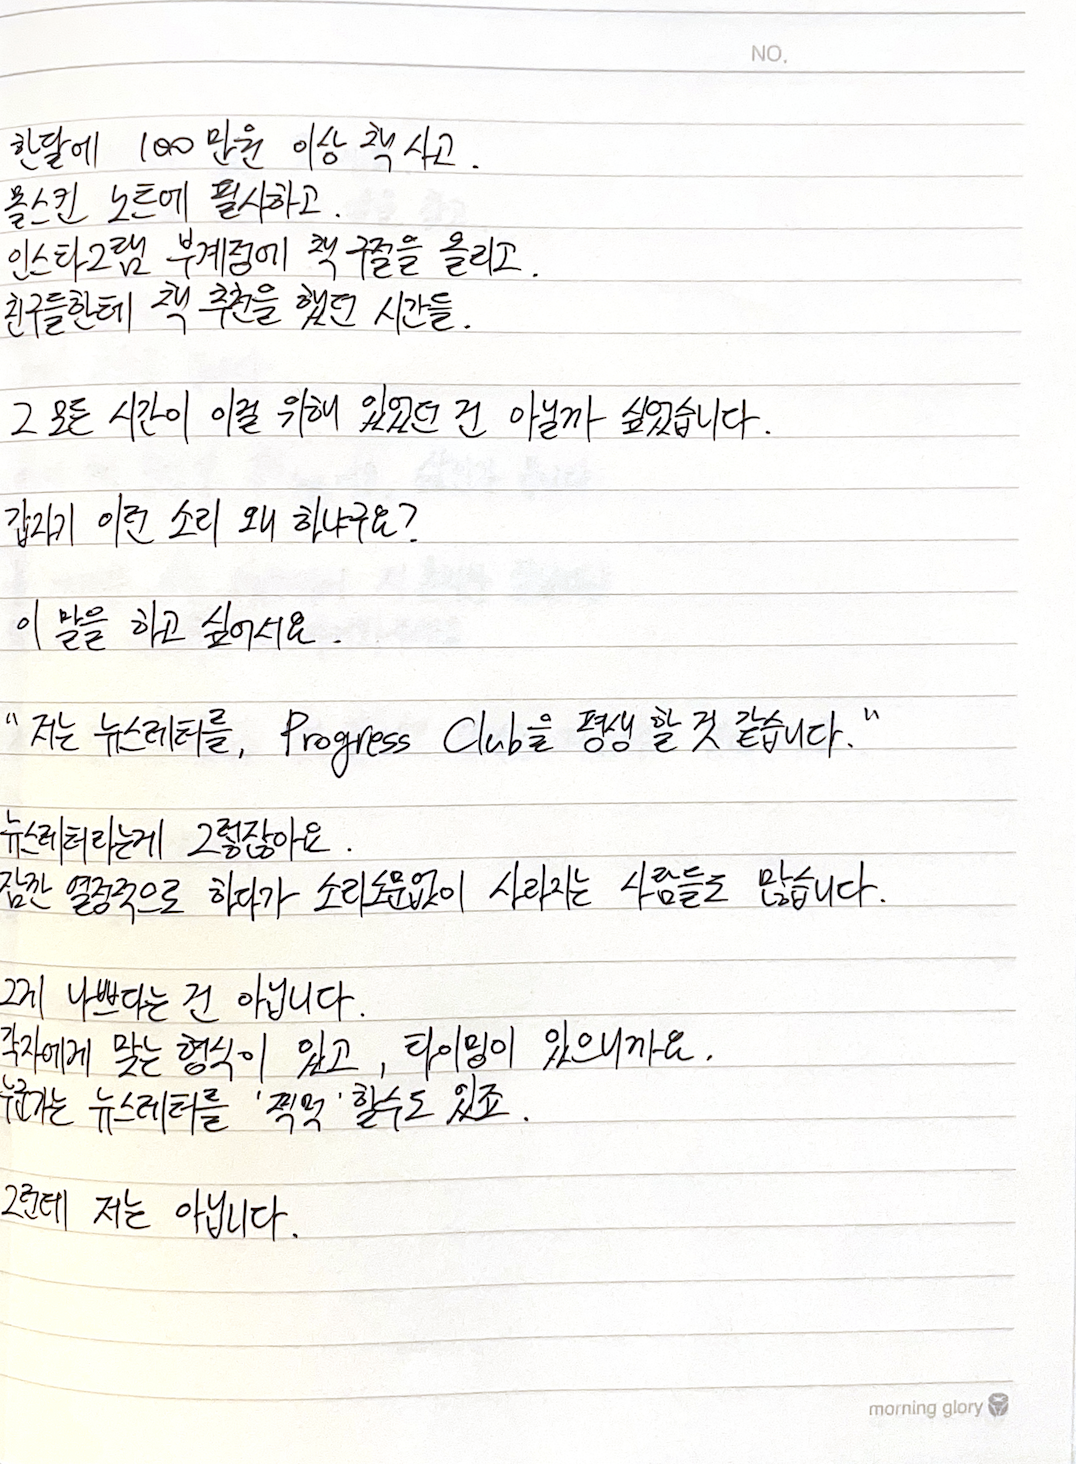 NO.
한달에 100만원 이상 책 사고.
몰스킨 노트에 필사하고.
인스타그램 부계정에 책 구절을 올리고.
친구들한테 책 추천을 했던 시간들.
그 모든 시간이 이걸 위해 있었던 건 아닐까 싶었습니다.
갑자기 이런 소리 왜 하냐구요?
이 말을 하고 싶어서요.
"저는 뉴스레터를, Progress Club을 평생 할 것 같습니다."
뉴스레터라는게 그렇잖아요.
잠깐 열정적으로 하다가 소리소문없이 사라지는 사람들도 많습니다.
그게 나쁘다는 건 아닙니다.
각자에게 맞는 형식이 있고, 타이밍이 있으니까요.
누군가는 뉴스레터를 '찍먹' 할수도 있죠.
그런데 저는 아닙니다.
morning glory